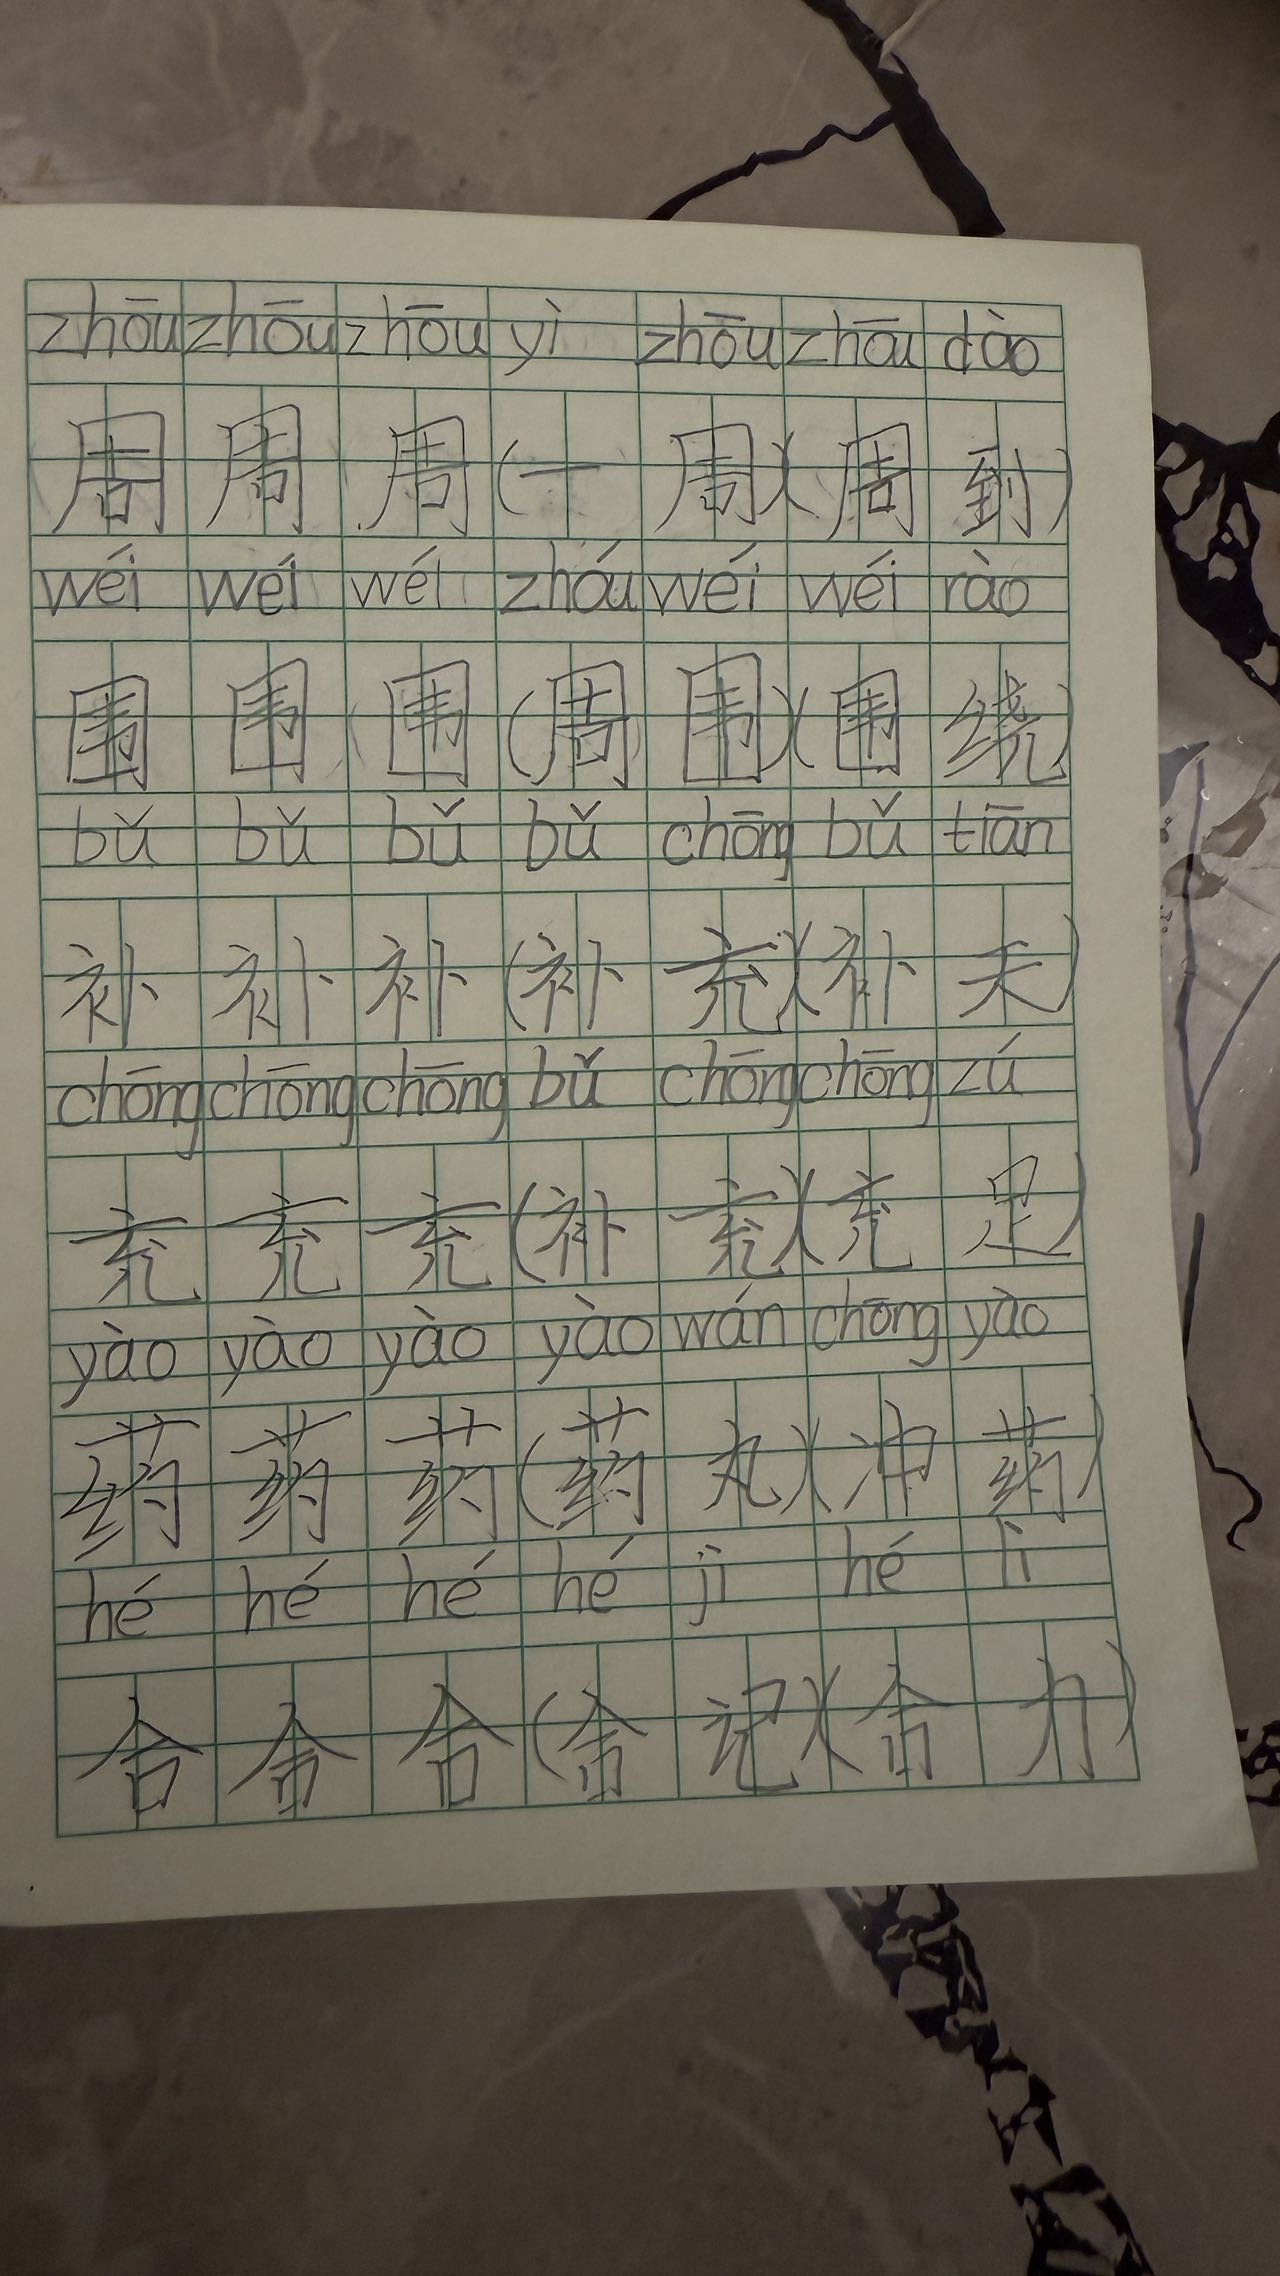 zhōu zhōu zhōu yì zhōu zhōu dào
周 周 周 (一 周)(周 到)
wéi wéi wéi zhóu wéi wéi rào
围 围 围 (周 围)(围 绕)
bǔ bǔ bǔ bǔ chōng bǔ tiān
补 补 补 (补 充)(补 天)
chōng chōng chōng bǔ chōng chōng zú
充 充 充 (补 充)(充 足)
yào yào yào yào wán chōng yào
药 药 药 (药 丸)(冲 药)
hé hé hé hé jì hé lì
合 合 合 (合 记)(合 力)